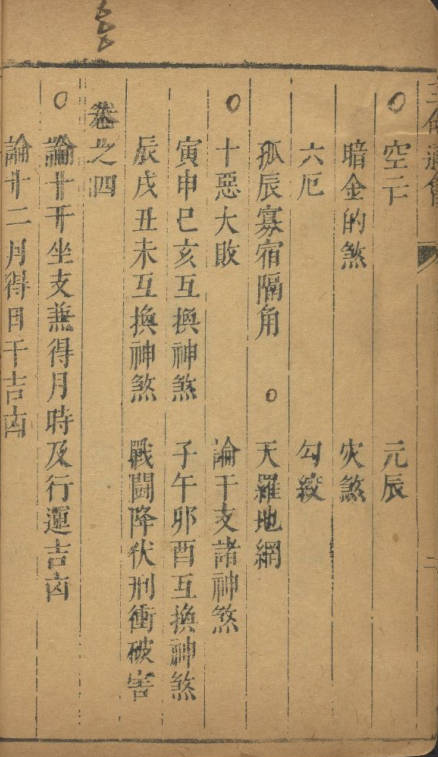 三命通會 二
○空亡 元辰
暗金的煞 灾煞
六厄 勾絞
孤辰寡宿隔角 ○天羅地網
○十惡大敗 論干支諸神煞
寅申巳亥互換神煞 子午卯酉互換神煞
辰戌丑未互換神煞 戰鬪降伏刑衝破害
卷之四
○論十干坐支兼得月時及行運吉凶
論十二月得日干吉凶